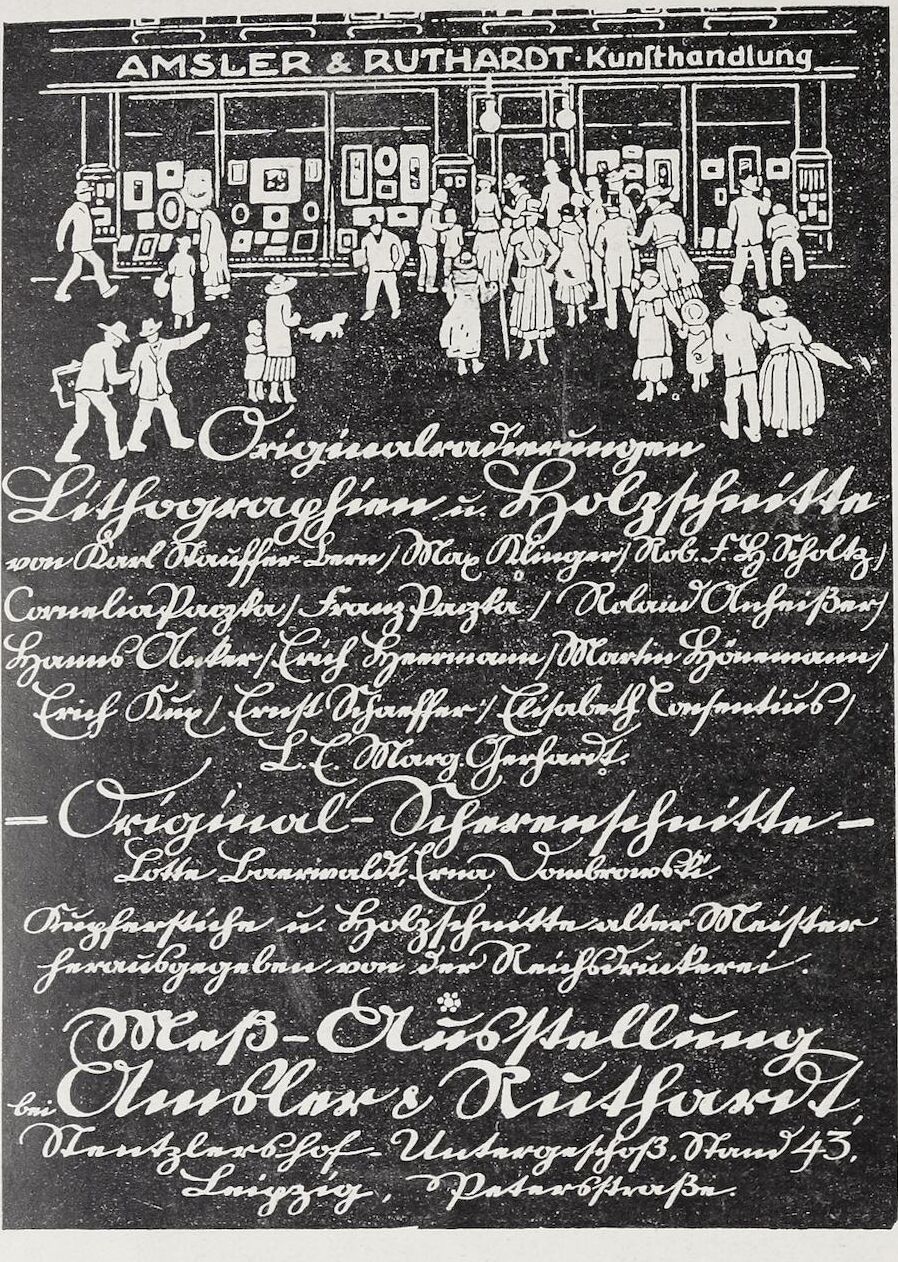 AMSLER & RUTHARDT·Kunsthandlung
Originalradierungen
Lithographien u. Holzschnitte
von Karl Stauffer-Bern / Max Klinger / Rob. F. H. Scholtz /
Cornelia Paczka / Franz Paczka / Roland Anheißer /
Hanns Anker / Erich Heermann / Martin Hönemann /
Erich Kux / Ernst Schaeffer / Elisabeth Consentius /
L. E. Marg. Gerhardt.
- Original-Scherenschnitte -
Lotte Baerwaldt, Erna Dombrowski
Kupferstiche u. Holzschnitte alter Meister
herausgegeben von der Reichsdruckerei.
Meß-Ausstellung
bei Amsler & Ruthardt,
Stentzlershof - Untergeschoß, Stand 43,
Leipzig, Petersstraße.